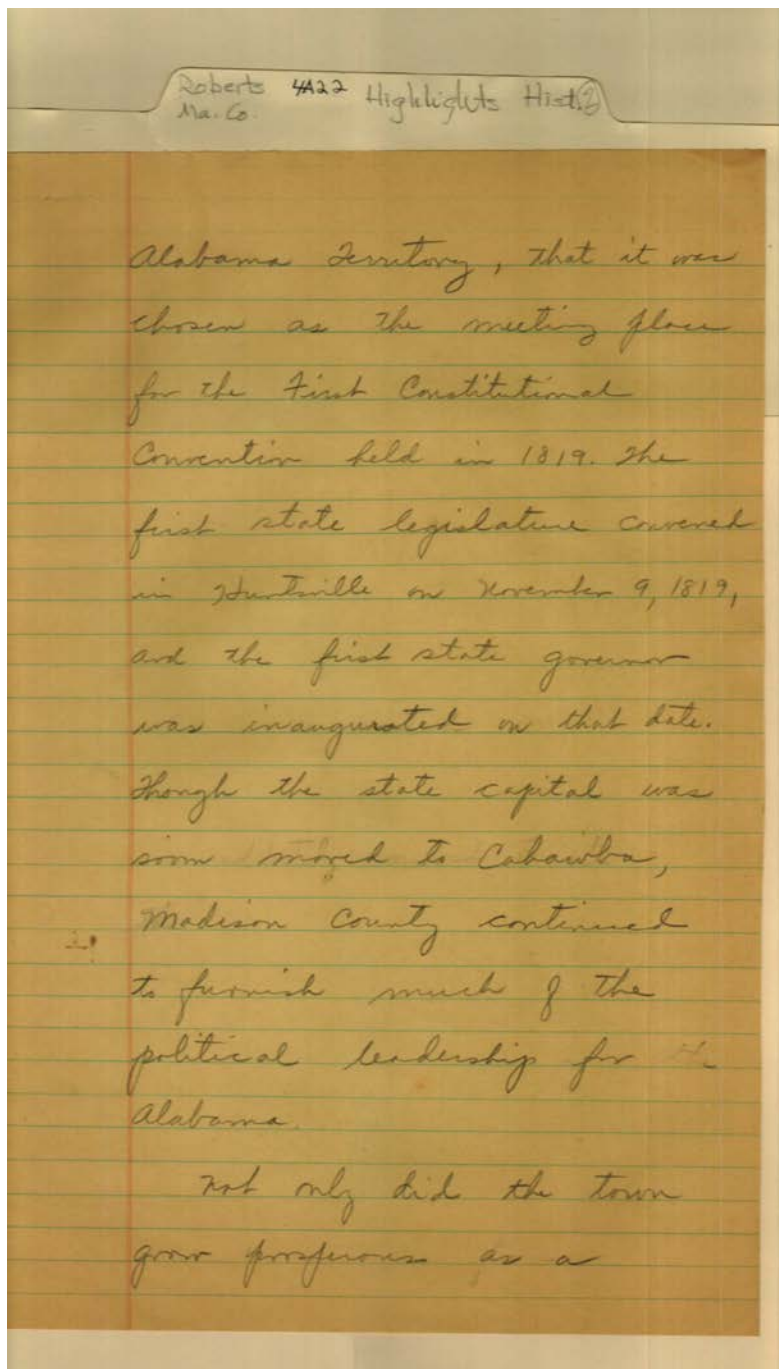 Roberts 4A22 Highlights Hist. 2
Ma. Co.
Alabama Territory, that it was
chosen as the meeting place
for the First Constitutional
Convention held in 1819. The
first state legislature convened
in Huntsville on November 9, 1819,
and the first state governor
was inaugurated on that date.
Though the state capital was
soon moved to Cahawba,
Madison County continued
to furnish much of the
political leadership for
Alabama.
Not only did the town
grow prosperous as a